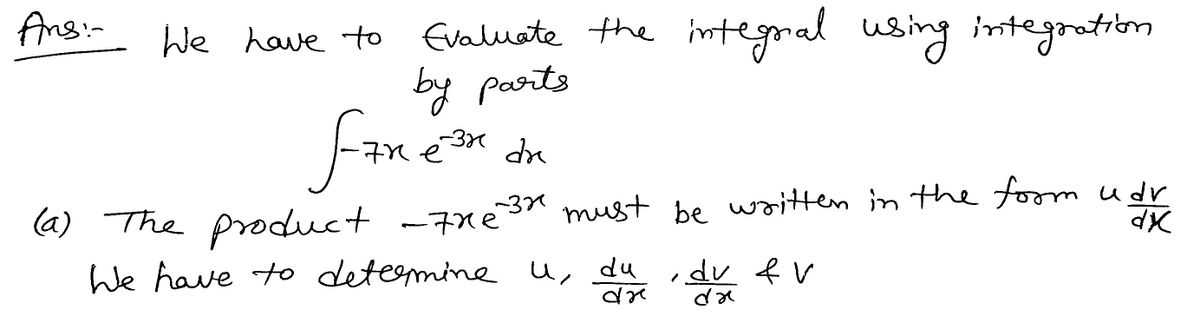 Ans:- We have to Evaluate the integral using integration
by parts
∫-7x e^{-3x} dx
(a) The product -7xe^{-3x} must be written in the form u dv/dx
We have to determine u, du/dx, dv/dx & v